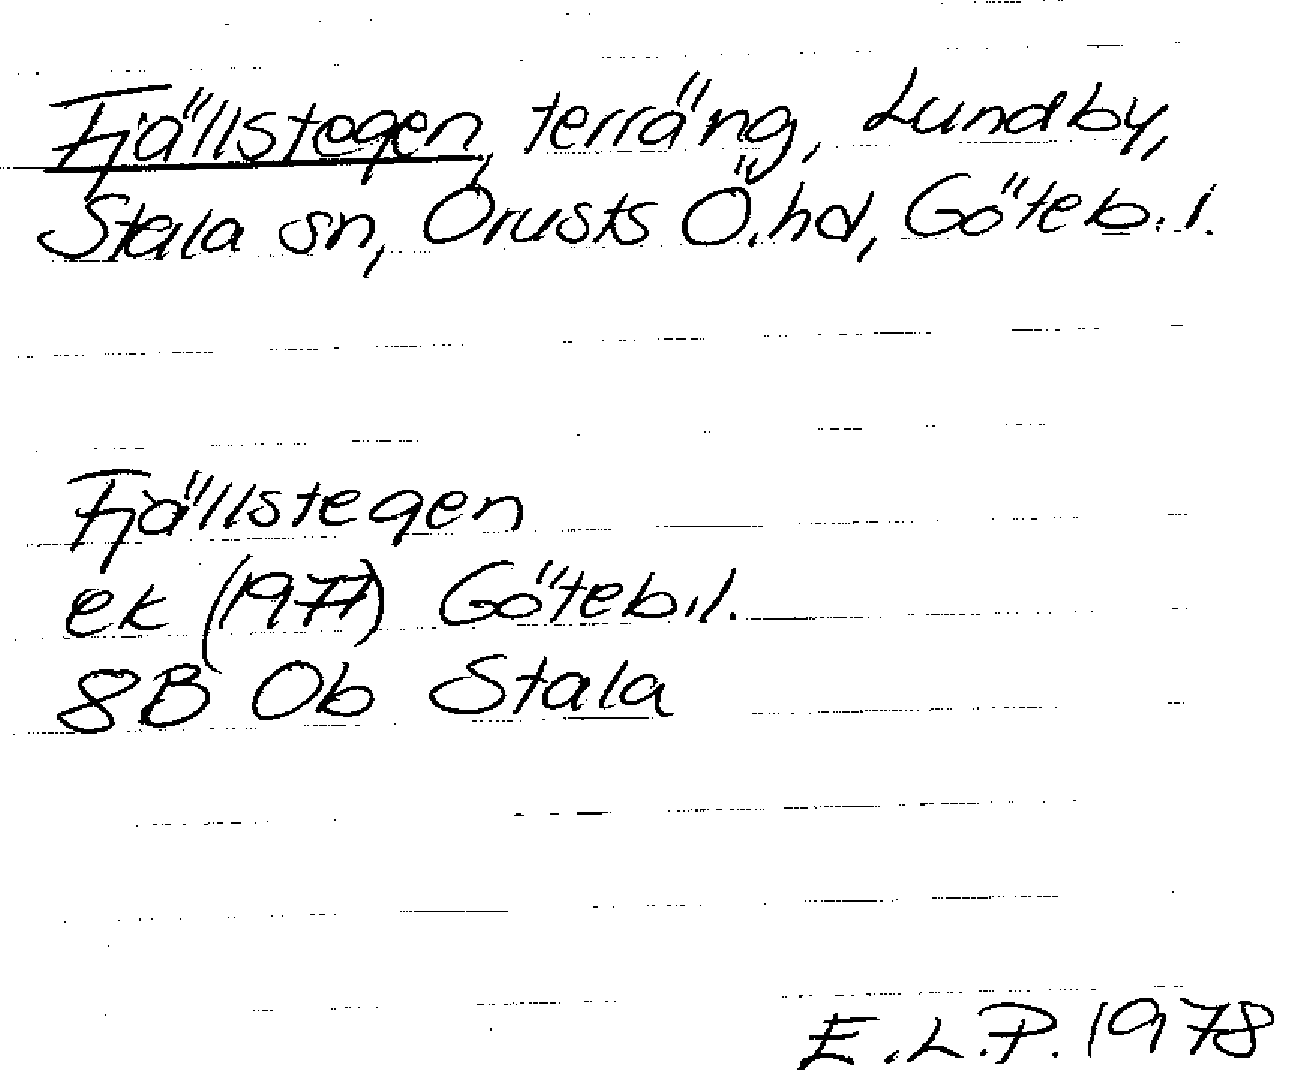 Fjällstegen, terräng, Lundby,
Stala sn, Orusts Ö.hd, Göteb.l.
Fjällstegen
ek (1977) Göteb.l.
8B 0b Stala
E.L.P. 1978